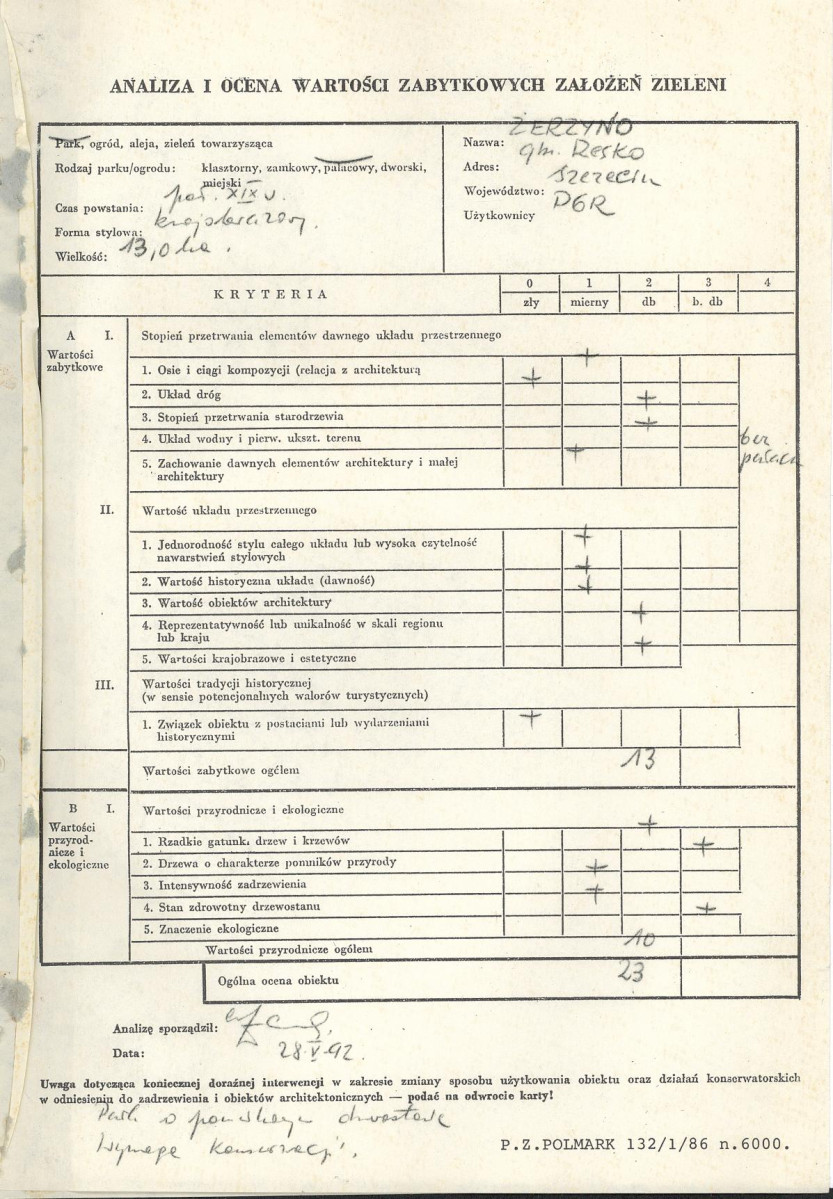 ANALIZA I OCENA WARTOŚCI ZABYTKOWYCH ZAŁOŻEŃ ZIELENI
Park, ogród, aleja, zieleń towarzysząca
Rodzaj parku/ogrodu: klasztorny, zamkowy, pałacowy, dworski,
miejski —
Czas powstania: poł. XIX w.
Forma stylowa: krajobrazowy.
Wielkość: 13,0 ha.
Nazwa: ŻERZYNO
Adres: gm. Resko
Województwo: Szczecin
Użytkownicy PGR
KRYTERIA 0 1 2 3 4
zły mierny db b. db
A I. Stopień przetrwania elementów dawnego układu przestrzennego
Wartości
zabytkowe
+
1. Osie i ciągi kompozycji (relacja z architekturą
+
2. Układ dróg +
3. Stopień przetrwania starodrzewia +
4. Układ wodny i pierw. ukszt. terenu
bez
pałacu
5. Zachowanie dawnych elementów architektury i małej +
architektury
II. Wartość układu przestrzennego
1. Jednorodność stylu całego układu lub wysoka czytelność +
nawarstwień stylowych
+
2. Wartość historyczna układu (dawność) +
3. Wartość obiektów architektury +
4. Reprezentatywność lub unikalność w skali regionu
lub kraju +
5. Wartości krajobrazowe i estetyczne
III. Wartości tradycji historycznej
(w sensie potencjonalnych walorów turystycznych)
1. Związek obiektu z postaciami lub wydarzeniami +
historycznymi
Wartości zabytkowe ogółem 13
B I. Wartości przyrodnicze i ekologiczne
Wartości
przyrod-
nicze i
ekologiczne
+
1. Rzadkie gatunki drzew i krzewów +
2. Drzewa o charakterze pomników przyrody +
3. Intensywność zadrzewienia +
4. Stan zdrowotny drzewostanu +
5. Znaczenie ekologiczne
Wartości przyrodnicze ogółem 10
Ogólna ocena obiektu 23
Analizę sporządził:
Data: 28.V.92.
Uwaga dotycząca koniecznej doraźnej interwencji w zakresie zmiany sposobu użytkowania obiektu oraz działań konserwatorskich
w odniesieniu do zadrzewienia i obiektów architektonicznych — podać na odwrocie karty!
Park o
Wymaga konserwacji.
P.Z.POLMARK 132/1/86 n.6000.